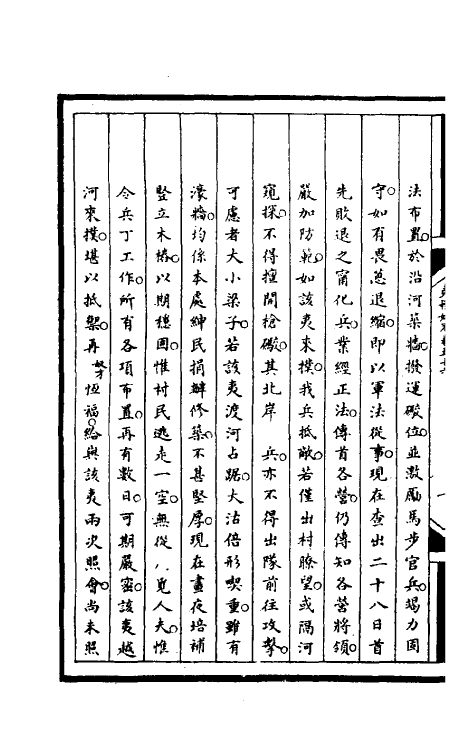 法布置。於沿河築牆。撥運礮位。並激勵馬步官兵。竭力固
守。如有畏葸退縮。即以軍法從事。現在查出二十八日首
先敗退之甯化兵。業經正法。傳首各營。仍傳知各營將領。
嚴加防範。如該夷來撲。我兵抵敵。若僅出村瞭望。或隔河
窺探。不得擅開槍礮。其北岸 兵亦不得出隊前往攻擊。
可慮者大小梁子。若該夷渡河占踞。大沽倍形喫重。雖有
濠牆。均係本處紳民捐辦修築。不甚堅厚。現在晝夜培補
竪立木樁。以期穩固。惟村民逃走一空。無從 覓人夫。惟
令兵丁工作。所有各項布置。再有數日。可期嚴密。該夷越
河來撲。堪以抵禦。再奴才恆福。給與該夷兩次照會。尚未照